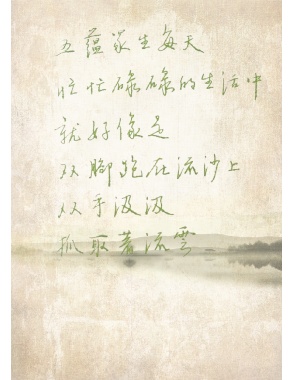 五蘊众生每天
忙忙碌碌的生活中
就好像是
双腳跑在流沙上
双手汲汲
抓取著流雲